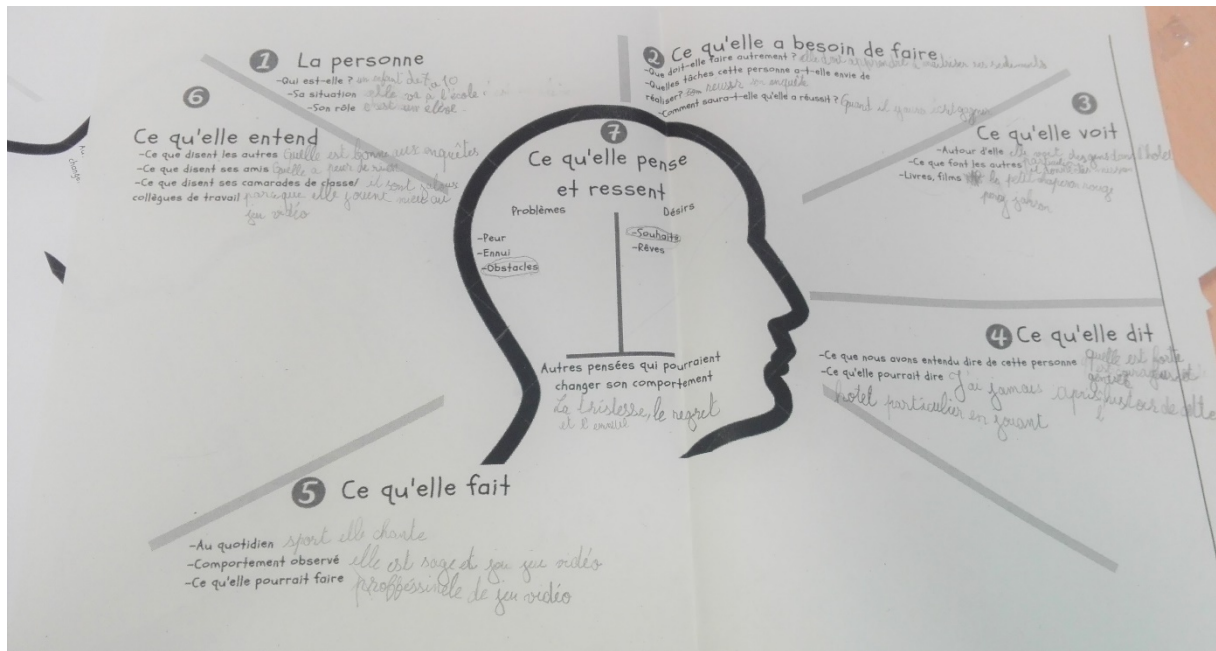 1 La personne
-Qui est-elle ? un enfant de 7 à 10
-Sa situation elle va à l'école
-Son rôle c'est un élève
2 Ce qu'elle a besoin de faire
-Que doit-elle faire autrement ? elle doit
-Quelles tâches cette personne a-t-elle envie de
réaliser? en enquête
-Comment saura-t-elle qu'elle a réussit ? Quand il
3
Ce qu'elle voit
-Autour d'elle elle des gens dans l'hotel
-Ce que font les autres
-Livres, films le petit chaperon rouge
4 Ce qu'elle dit
-Ce que nous avons entendu dire de cette personne quelle est forte
-Ce qu'elle pourrait dire J'ai jamais apris histoir de cette
hotel particulier en jouant
5 Ce qu'elle fait
-Au quotidien sport elle chante
-Comportement observé elle est sage et jou jeu vidéo
-Ce qu'elle pourrait faire proffessinele de jeu vidéo
6
Ce qu'elle entend
-Ce que disent les autres Quelle est bonne enquêtes
-Ce que disent ses amis Quelle a peur de rien
-Ce que disent ses camarades de classe/ il sont jaloux
collègues de travail parceque elle jouent mieu au
jeu vidéo
7
Ce qu'elle pense
et ressent
Problèmes
-Peur
-Ennui
-Obstacles
Désirs
-Souhaits
-Rêves
Autres pensées qui pourraient
changer son comportement
La tristesse, le regret
et l'ennui